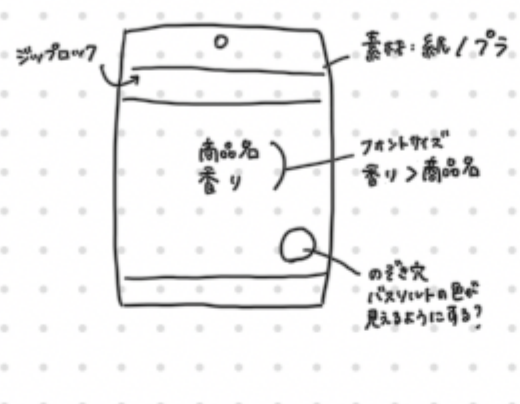 ジップロック
素材：紙/プラ
商品名
香り
フォントサイズ
香り＞商品名
のぞき穴
バスソルトの色が
見えるようにする？